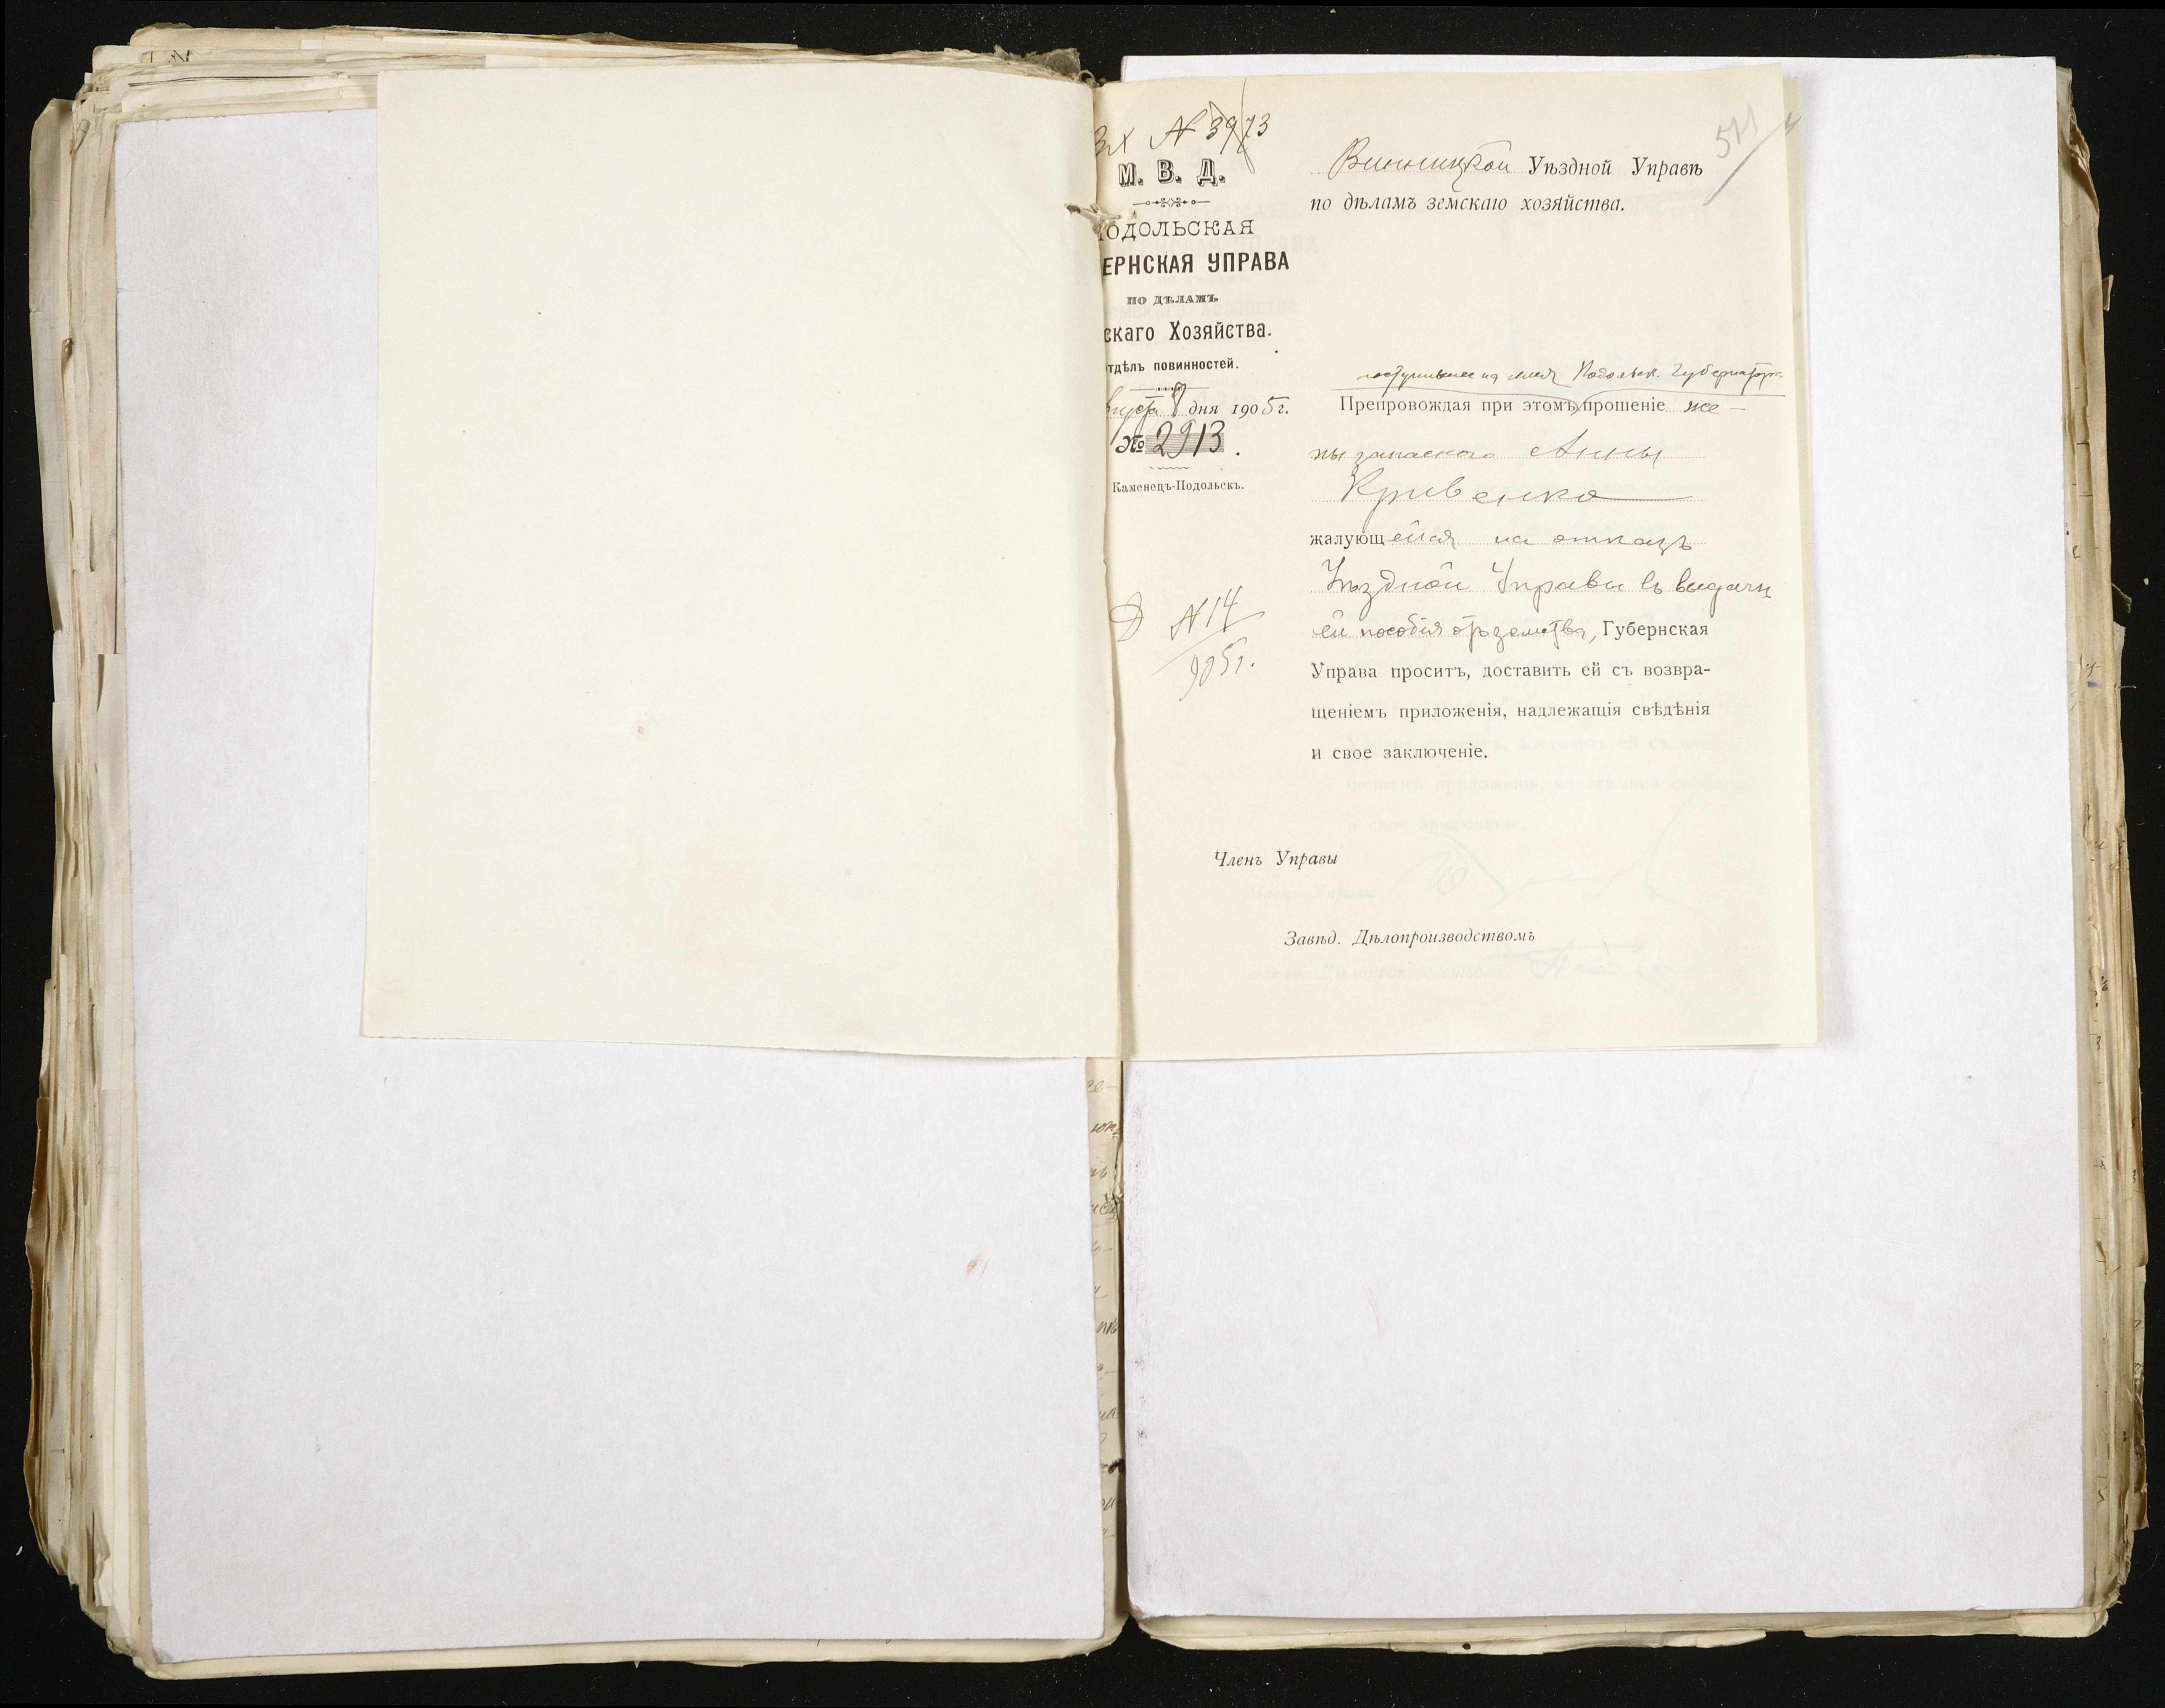 Вх N 3973
М. В. Д.
ПОДОЛЬСКАЯ
ЕРНСКАЯ УПРАВА
ПО ДѢЛАМЪ
скаго Хозяйства.
тдѣлъ повинностей.
Августа 8 дня 1905 г.
№ 2913.
Каменецъ-Подольскъ.
Д N 14
905 г.
511
Винницкой Уѣздной Управѣ
по дѣламъ земскаго хозяйства.
поступившее на имя Подольск. Губернатора
Препровождая при этомъ прошеніе же-
ны запаснаго Анны
Кривенко
жалующейся на отказъ
Уѣздной Управы въ выдачи
ей пособія отъ земства, Губернская
Управа проситъ, доставить ей съ возвра-
щеніемъ приложенія, надлежащія свѣдѣнія
и свое заключеніе.
Членъ Управы
Завѣд. Дѣлопроизводствомъ